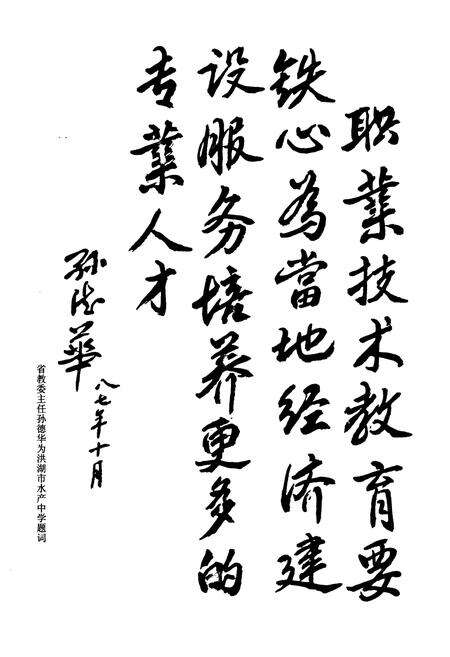 职業技术教育要
铁心為當地经济建
设服务培养更多的
专業人才
孙德華
八七年十月
省教委主任孙德华为洪湖市水产中学题词